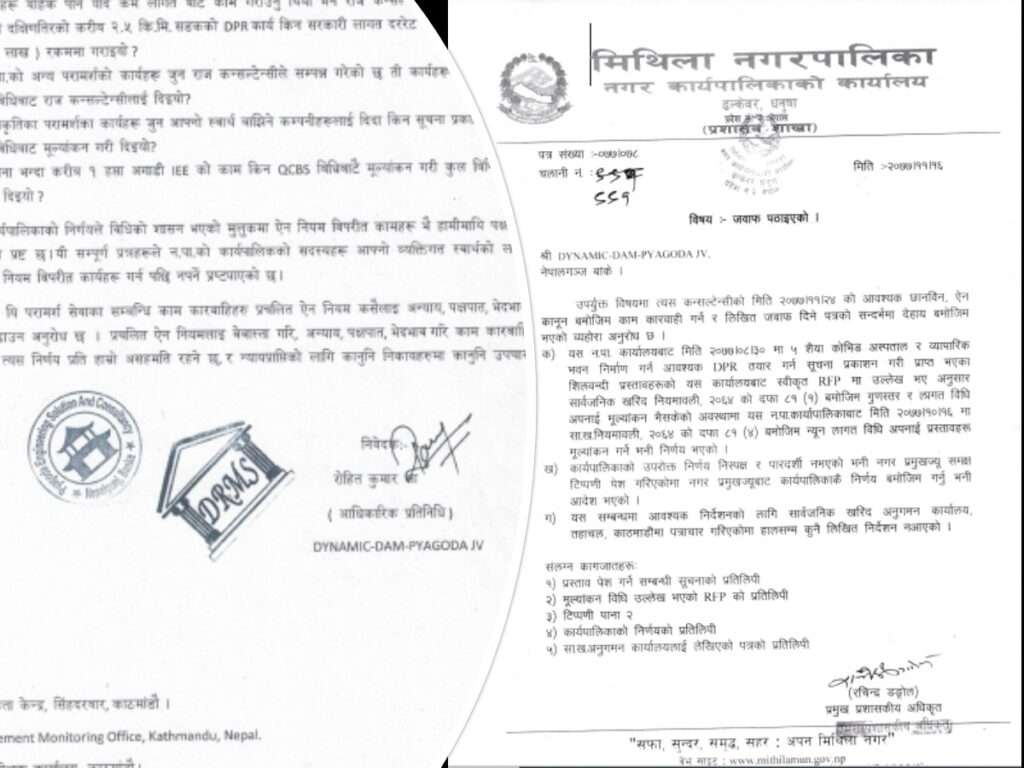 दक्षिणतिरको करीव २.५ कि.मि.सडकको DPR कार्य किन सरकारी लागत दररेट
लाख ) रकममा गराइयो ?
को अन्य परामर्शको कार्यहरू जुन राज कन्सल्टेन्सीले सम्पन्न गरेको छ ती कार्यहरू
राज कन्सल्टेन्सीलाई दिइयो?
परामर्शका कार्यहरू जुन आफ्नो स्वार्थ बाझिने कम्पनीहरूलाई दिदा किन सूचना
मूल्यांकन गरी दिइयो?
भन्दा करीव १ हप्ता अगाडी IEE को काम किन QCBS विधिबाटै मूल्यांकन गरी कुल
दिइयो ?
निर्णयले बिधिको शासन भएको मुलुकमा ऐन नियम विपरीत कामहरू भै हामीमाथि
छ।यी सम्पूर्ण प्रश्नहरूले न.पा.को कार्यपालिकको सदस्यहरू आफ्नो व्यक्तिगत स्वार्थको
नियम विपरीत कार्यहरू गर्न पछि नपर्ने प्रष्ट्याएको छ।
यि परामर्श सेवाका सम्बन्धि काम कारवाहिहरु प्रचलित ऐन नियम कसैलाइ अन्याय, पक्षपात,
अनुरोध छ । प्रचलित ऐन नियमलाइ बेवास्ता गरि, अन्याय, पक्षपात, भेदभाव गरि काम
त्यस निर्णय प्रति हाम्रो असहमति रहने छ,र न्यायप्राप्तिको लागि कानुनि निकायहरुमा कानुनि
Pyagoda Engineering Solution And Consultancy
DRMS
निवेदक:-
रोहित कुमार
( आधिकारिक प्रतिनिधि )
DYNAMIC-DAM-PYAGODA JV
केन्द्र, सिंहदरवार, काठमांडौ ।
Monitoring Office, Kathmandu, Nepal.
मिथिला नगरपालिका
नगर कार्यपालिकाको कार्यालय
ढल्केवर, धनुषा
(प्रशासन शाखा)
पत्र संख्या :-०७७।०७८
मिति :-२०७७।११।२६
चलानी न .:
५५१
विषय :- जवाफ पठाइएको ।
श्री DYNAMIC-DAM-PYAGODA JV,
नेपालगञ्ज बांके ।
उपर्युक्त विषयमा त्यस कन्सल्टेन्सीको मिति २०७७।११।२४ को आवश्यक छानविन, ऐन
कानून बमोजिम काम कारवाही गर्न र लिखित जवाफ दिने पत्रको सन्दर्भमा देहाय बमोजिम
भएको व्यहोरा अनुरोध छ ।
क) यस न.पा. कार्यालयबाट मिति २०७७।०८।३० मा ५ शैया कोभिड अस्पताल र व्यापारिक
भवन निर्माण गर्न आवश्यक DPR तयार गर्न सूचना प्रकाशन गरी प्राप्त भएका
शिलवन्दी प्रस्तावहरुको यस कार्यालयबाट स्वीकृत RFP मा उल्लेख भए अनुसार
सार्वजनिक खरिद नियमावली, २०६४ को दफा ८१ (१) बमोजिम गुणस्तर र लागत विधि
अपनाई मूल्यांकन भैसकेको अवस्थामा यस न.पा.कार्यपालिकाबाट मिति २०७७।१०।१६ मा
सा.ख.नियमावली, २०६४ को दफा ८१ (४) बमोजिम न्यून लागत विधि अपनाई प्रस्तावहरू
मूल्यांकन गर्ने भनी निर्णय भएको ।
ख) कार्यपालिकाको उपरोक्त निर्णय निस्पक्ष र पारदर्शी नभएको भनी नगर प्रमुखज्यू समक्ष
टिप्पणी पेश गरिएकोमा नगर प्रमुखज्यूबाट कार्यपालिकाकै निर्णय बमोजिम गर्नु भनी
आदेश भएको ।
ग) यस सम्बन्धमा आवश्यक निर्देशनको लागि सार्वजनिक खरिद अनुगमन कार्यालय,
तहाचल, काठमाडौमा पत्राचार गरिएकोमा हालसम्म कुनै लिखित निर्देशन नआएको ।
संलग्न कागजातहरू:
१) प्रस्ताव पेश गर्ने सम्बन्धी सूचनाको प्रतिलिपी
२) मूल्यांकन विधि उल्लेख भएको RFP को प्रतिलिपी
३) टिप्पणी पाना २
४) कार्यपालिकाको निर्णयको प्रतिलिपी
५) सा.ख.अनुगमन कार्यालयलाई लेखिएको पत्रको प्रतिलिपी
(रविन्द्र डङ्गोल)
प्रमुख प्रशासकीय अधिकृत
"सफा, सुन्दर, समृद्ध, सहर : अपन मिथिला नगर"
वेभ साइट : www.mithilamun.gov.np